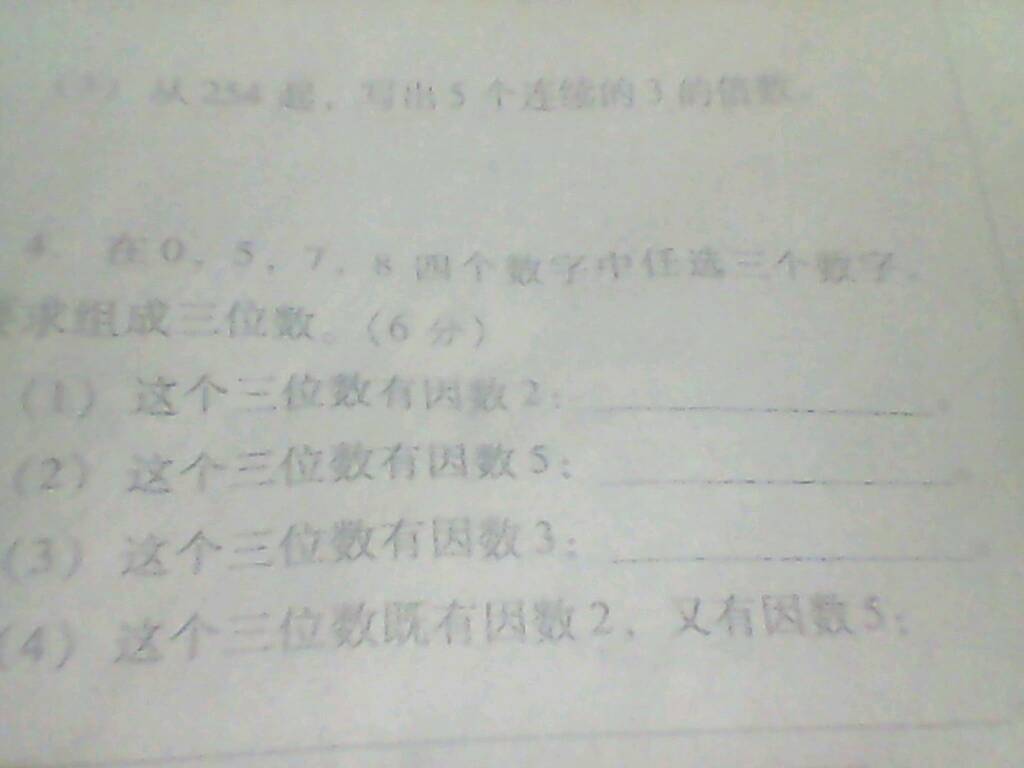 (3) 从 254 起，写出 5 个连续的 3 的倍数。
4. 在 0，5，7，8 四个数字中任选三个数字，
要求组成三位数。（6 分）
（1）这个三位数有因数 2：________。
（2）这个三位数有因数 5：________。
（3）这个三位数有因数 3：________。
（4）这个三位数既有因数 2，又有因数 5：